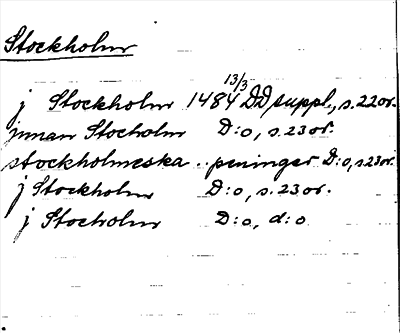 Stockholm
j Stockholm 1484 13/3 DD suppl., s. 22 or.
jnnan Stocholm D:o, s. 23 or.
stockholmeska .. peninger D:o, s 23 or.
j Stockholm D:o, s. 23 or.
j Stocholm D:o, d:o